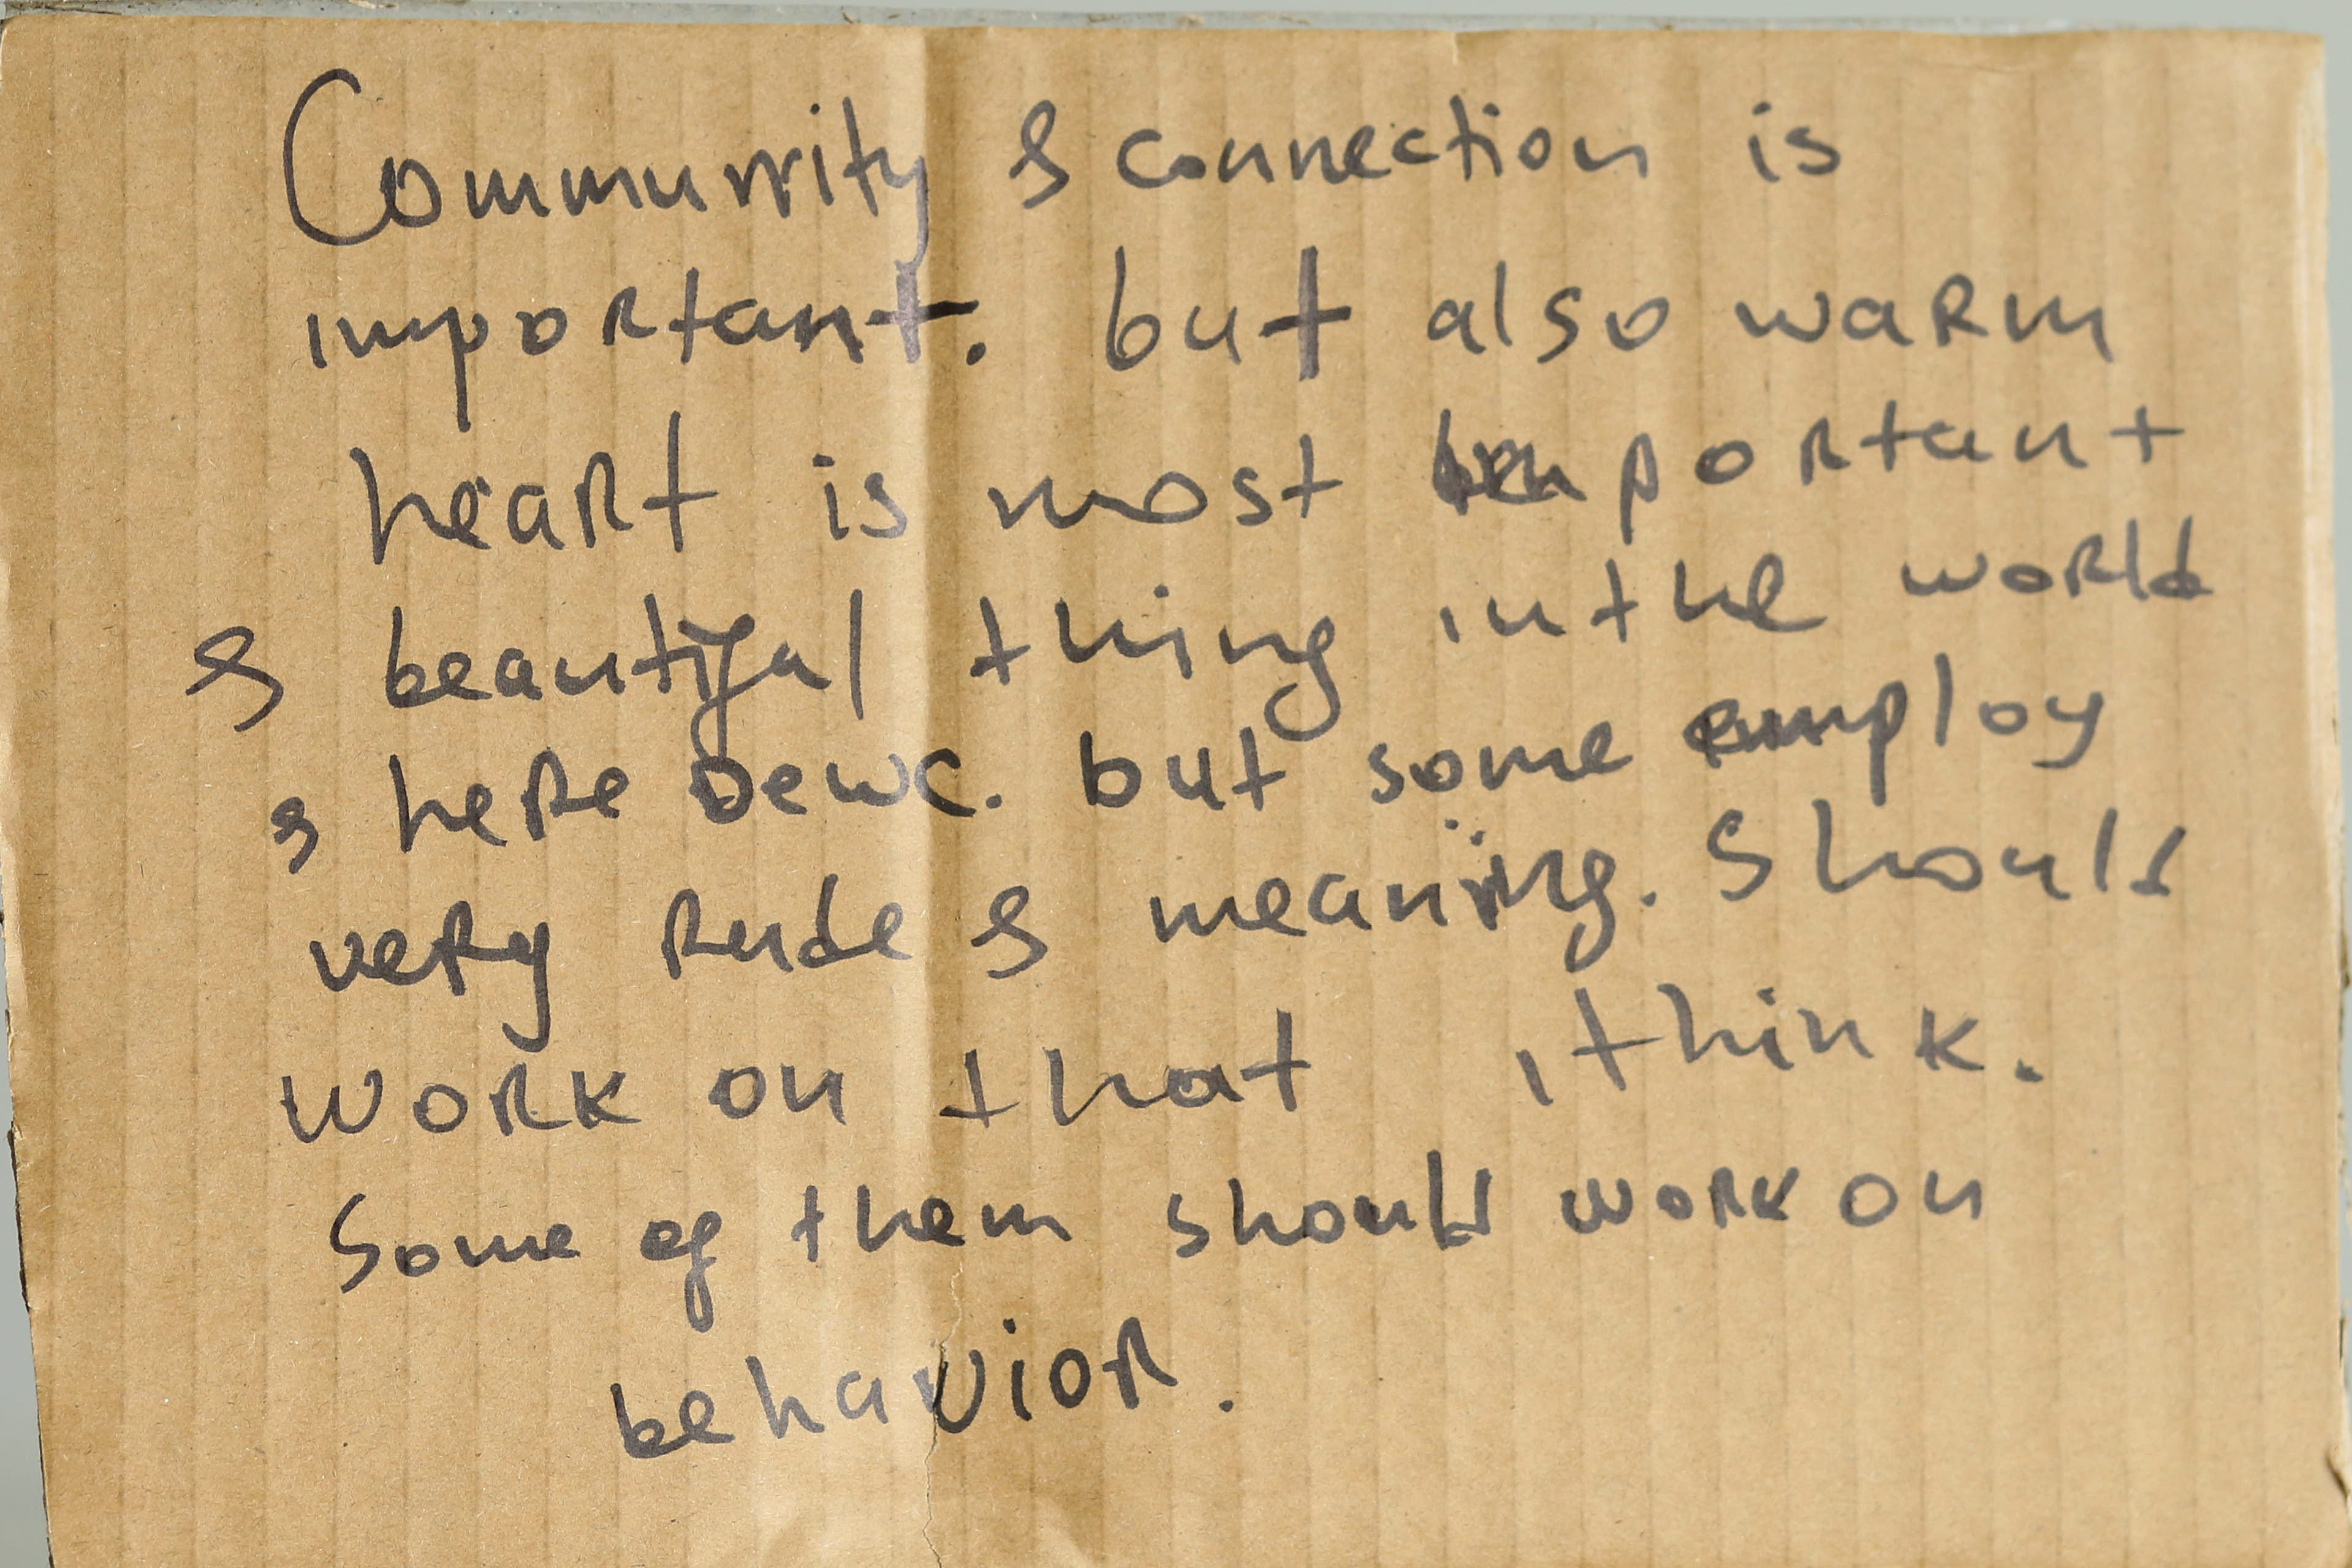 Community & connection is
important. but also warm
heart is most important
& beautiful thing in the world
& here DEWC. but some employ
very rude & meaning. Should
work on that i think.
Some of them should work on
behavior.